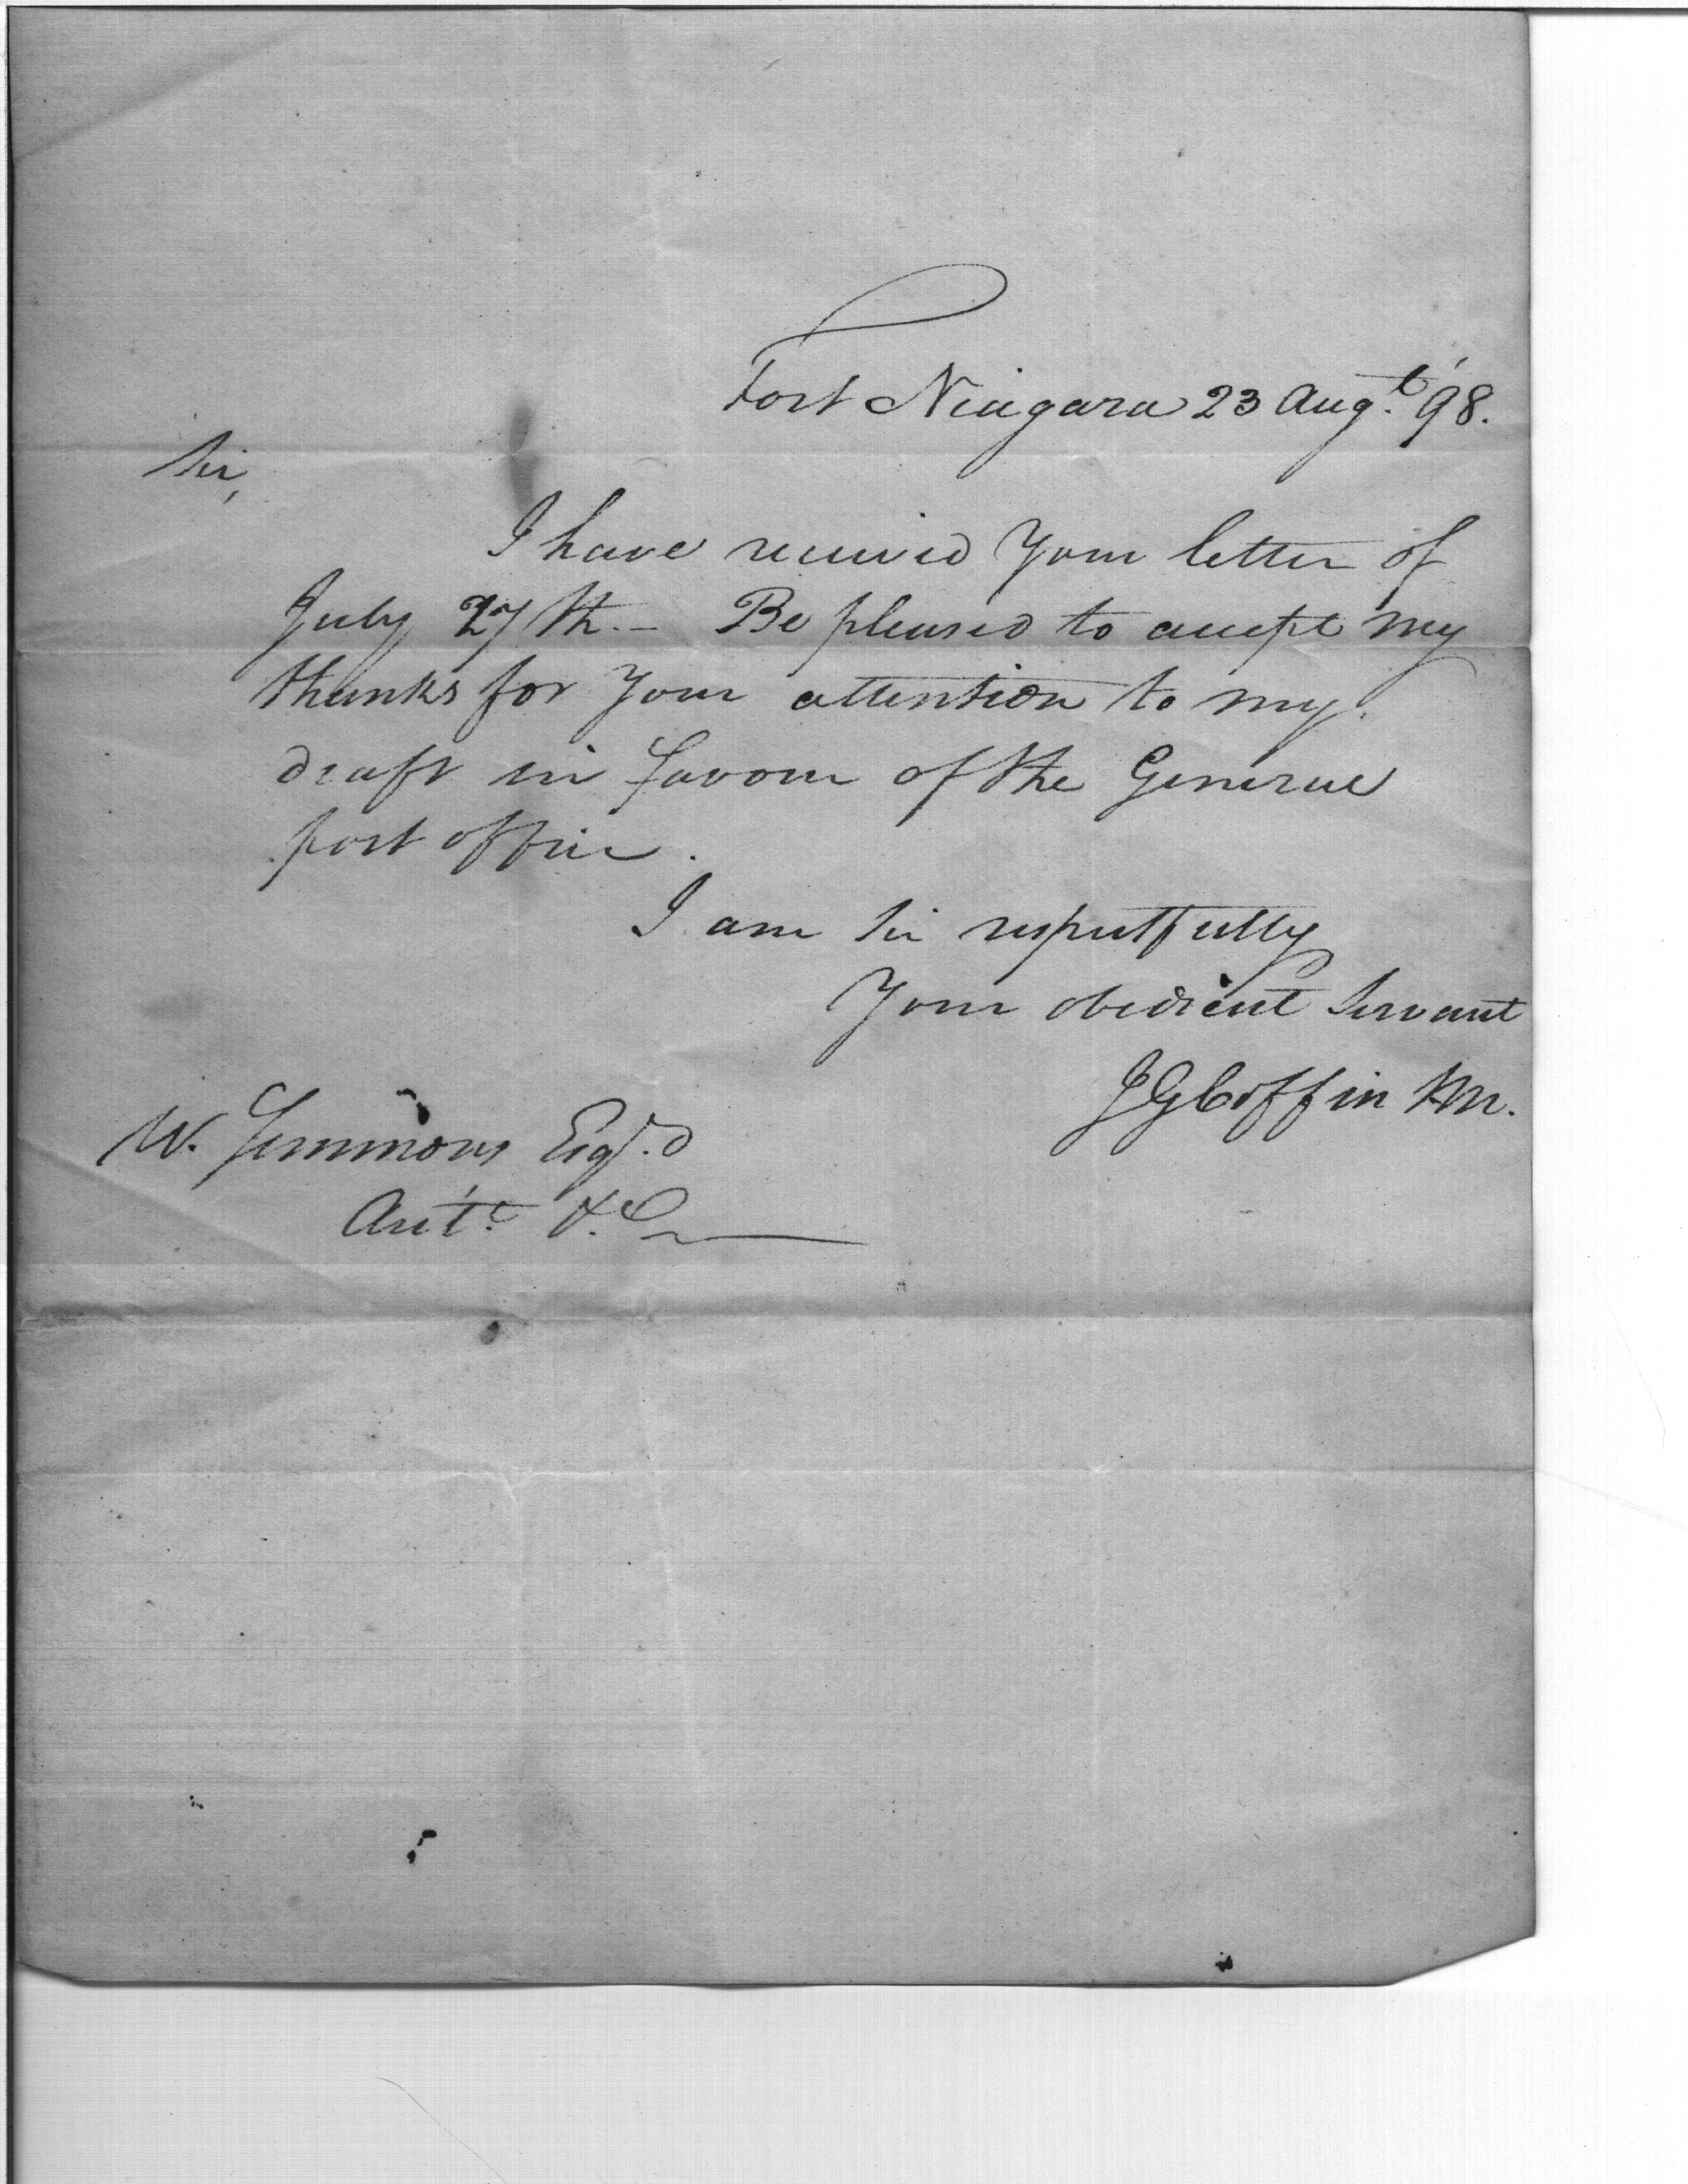 Fort Niagara 23 Augt. '98.
Sir,
I have received Your letter of
July 27th.– Be pleased to accept my
thanks for Your attention to my
draft in favour of the General
post office.
I am Sir respectfully
Your obedient Servant
J G Coffin
W. Simmons Esqr.
Acct. &c